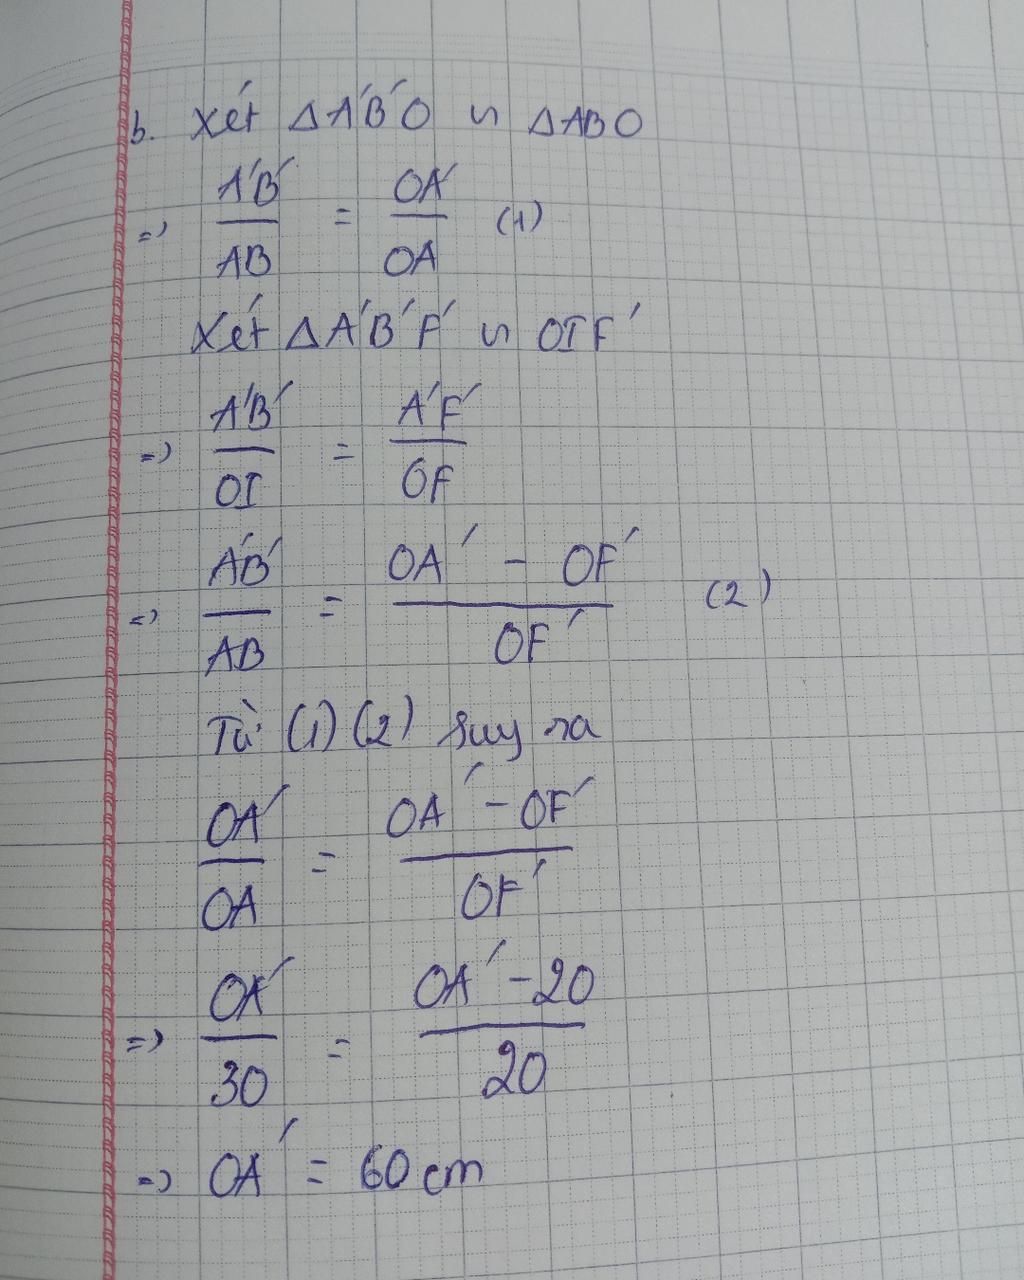 b. Xét ΔA'B'O ∽ ΔABO
=> A'B'/AB = OA'/OA (1)
Xét ΔA'B'F' ∽ OIF'
=> A'B'/OI = A'F'/OF
=> A'B'/AB = (OA' - OF')/OF' (2)
Từ (1) (2) suy ra
OA'/OA = (OA' - OF')/OF'
=> OA'/30 = (OA' - 20)/20
=> OA' = 60 cm